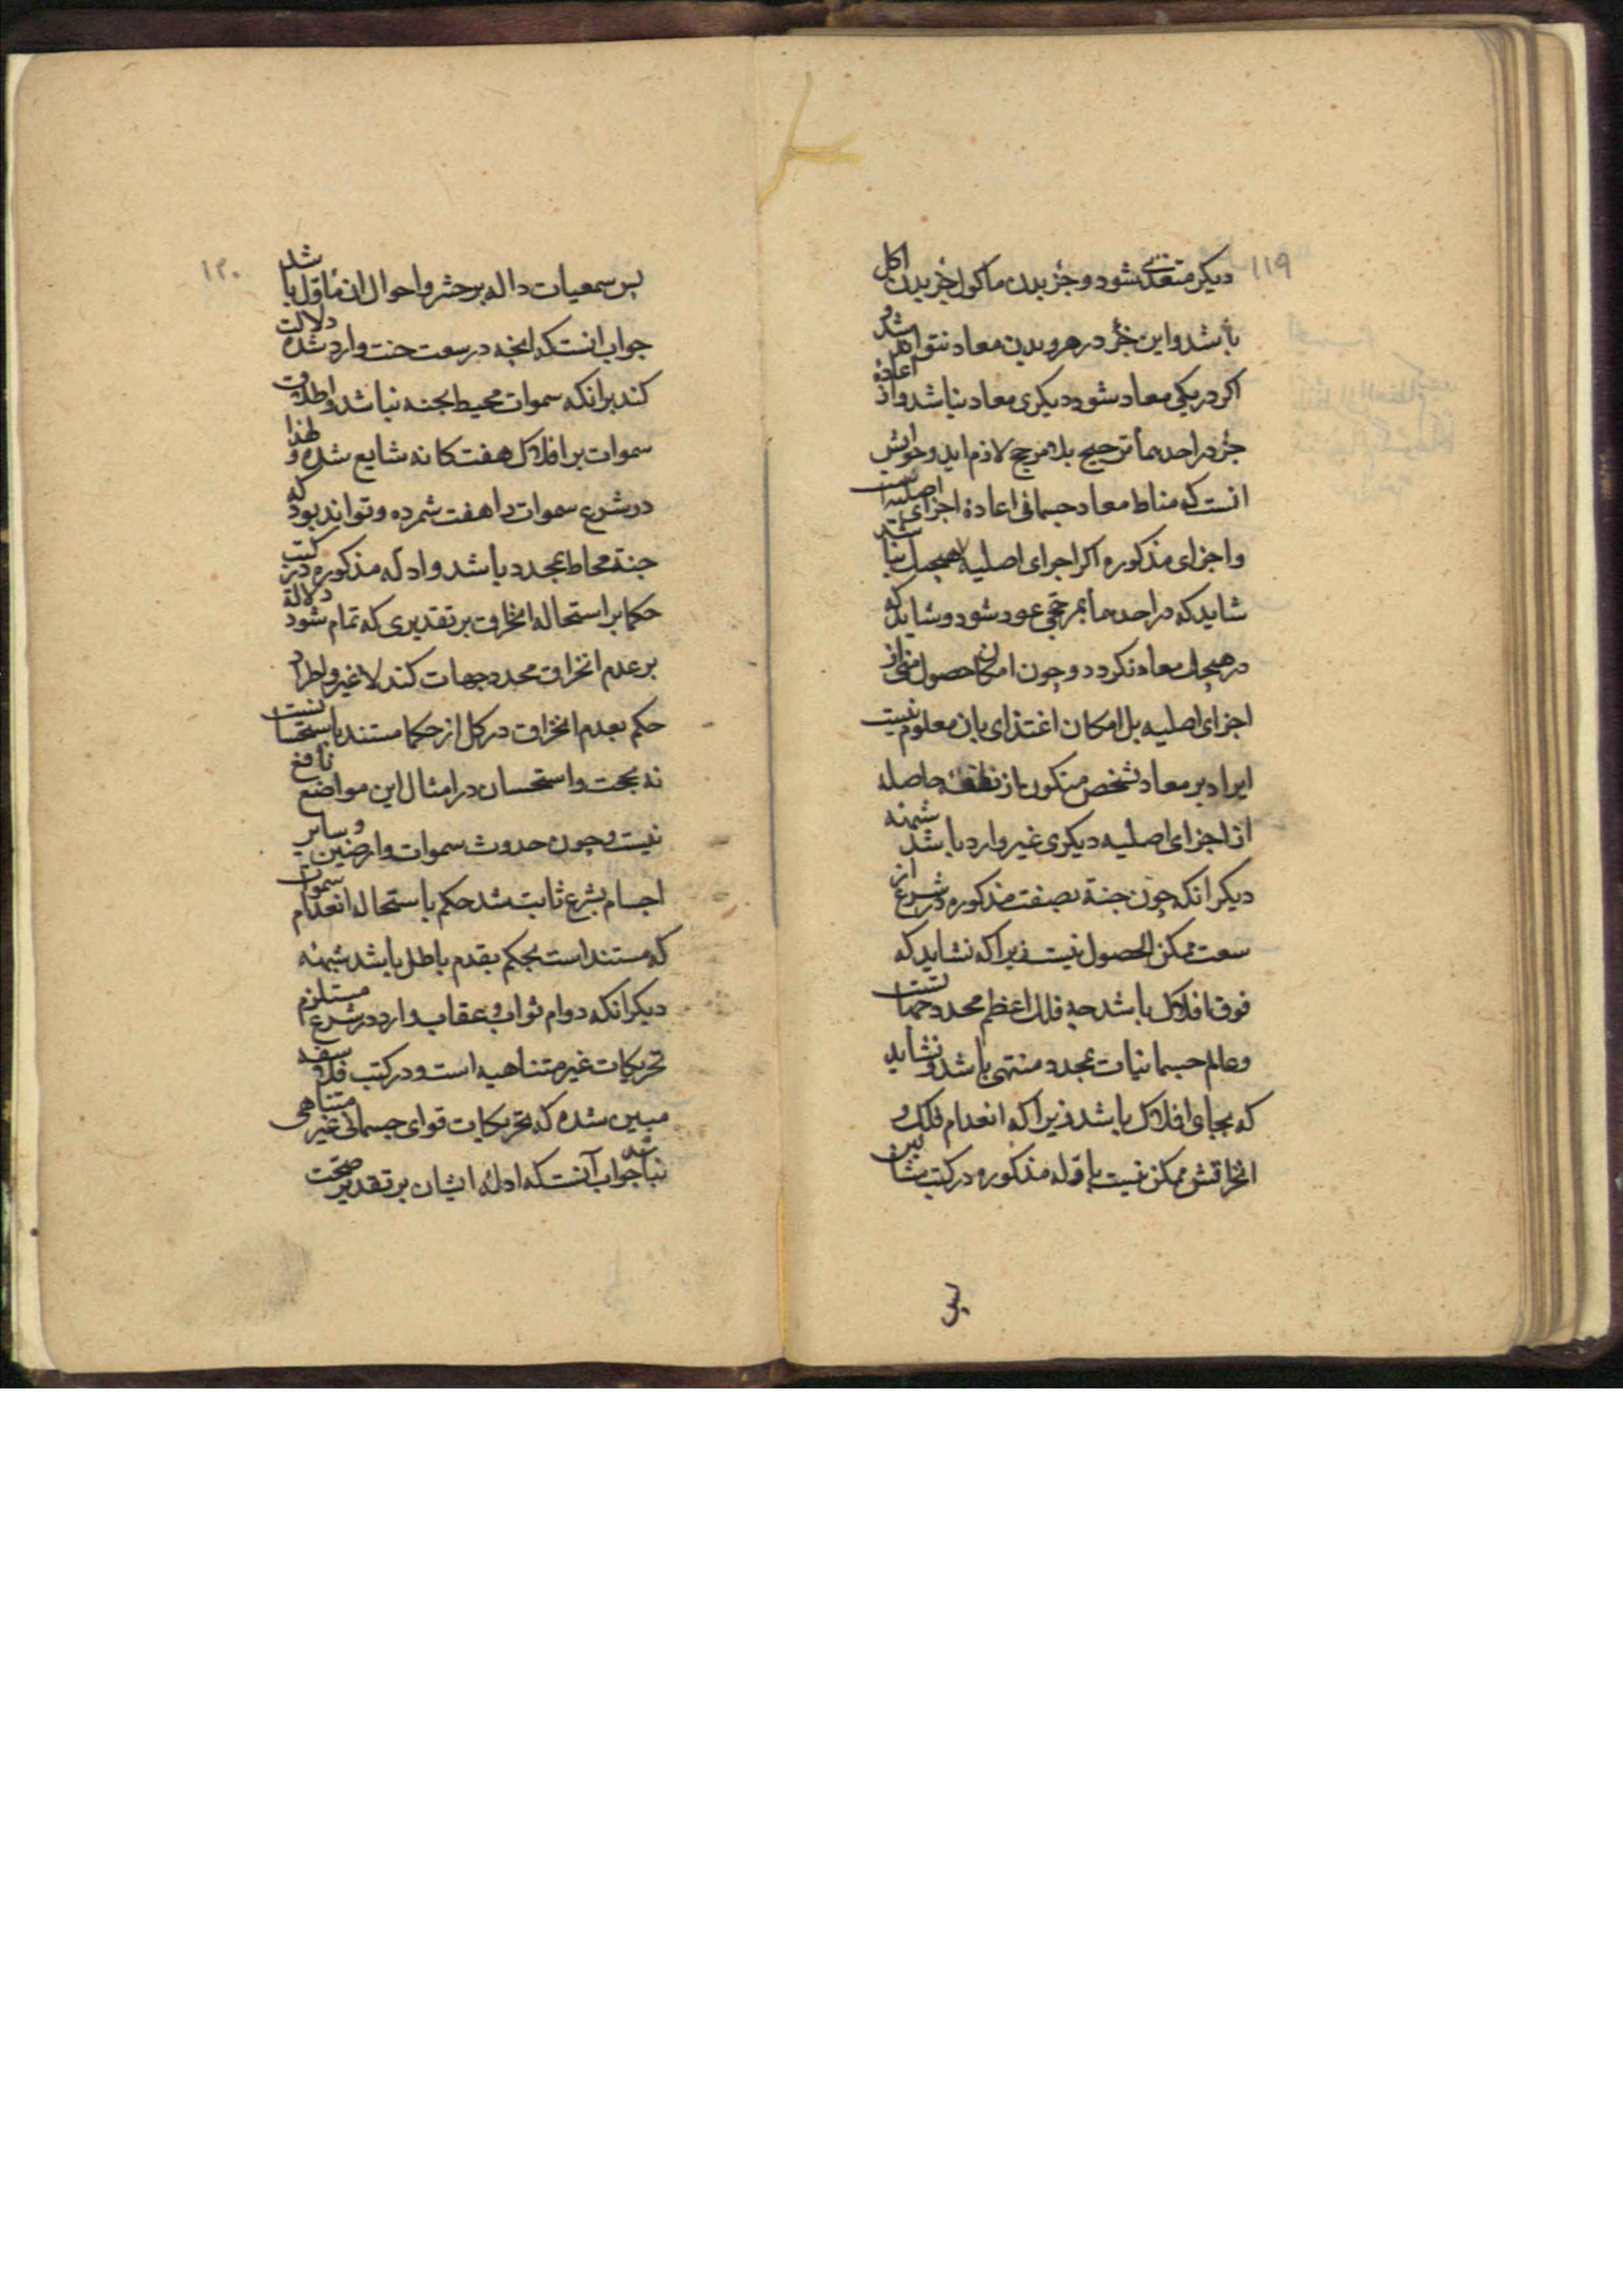 ۱۱۹
دیکر متغذی شود و جزٔ بدن ماکول جزٔ بدن اکل
باشد و این جزٔ در هر دو بدن معاد نتواند شد و
اکر در یکی معاد شود دیکری معاد نباشد و از اعادهٔ
جزٔ در احدهما ترجیح بلا مرجح لازم اید و جوابش
انست که مناط معاد جسمانی اعادهٔ اجزای اصلیه است
و اجزای مذکوره اکر اجرای اصلیه هیچیک نباشد
شاید که در احدهما بمرجحی عود شود و شاید که
در هیچیک معاد نکردد و چون امکان حصول منی از
اجزای اصلیه بل امکان اغتذای بان معلوم نیست
ایراد بر معاد شخص متکون از نطفهٔ حاصله
از اجزای اصلیه دیکری غیر وارد باشد شبهه
دیکر انکه چون جنة بصفت مذکوره در شرع از
سعت ممکن الحصول نیست زیرا که نشاید که
فوق افلاک باشد چه فلک اعظم محدد جهاتست
و عالم جسمانیات بمحدد منتهی باشد و نشاید
که بجای افلاک باشد زیرا که انعدام فلک و
انخراقش ممکن نیست بادله مذکوره در کتب مشائین
پس
۱۲۰
پس سمعیات داله بر حشر و احوال ان مأول باشد
جواب انستکه انچه در سعت جنت وارد شده دلالت
کند برانکه سموات محیط بجنه نباشد و اطلاق
سموات بر افلاک هفت کانه شایع شده و لهذا
در شرع سموات را هفت شمرده و تواند بود که
جنة محاط بمحدد باشد و ادله مذکوره در کتب
حکما بر استحاله انخراق بر تقدیری که تمام شود دلالة
بر عدم انخراق محدد جهات کند لا غیر و اطراد
حکم بعدم انخراق در کل از حکما مستند باستحسانست
نه بحجت و استحسان در امثال این مواضع نافع
نیست و چون حدوث سموات و ارضین و سایر
اجسام بشرع ثابت شد حکم باستحاله انعدام سموات
که مستند است بحکم بقدم باطل باشد شبهه
دیکر انکه دوام ثواب و عقاب وارد در شرع مستلزم
تحریکات غیر متناهیه است و در کتب فلاسفه
مبین شده که تحریکات قوای جسمانی غیر متناهی
نباشد جواب آنستکه ادلهٔ ایشان بر تقدیر صحت